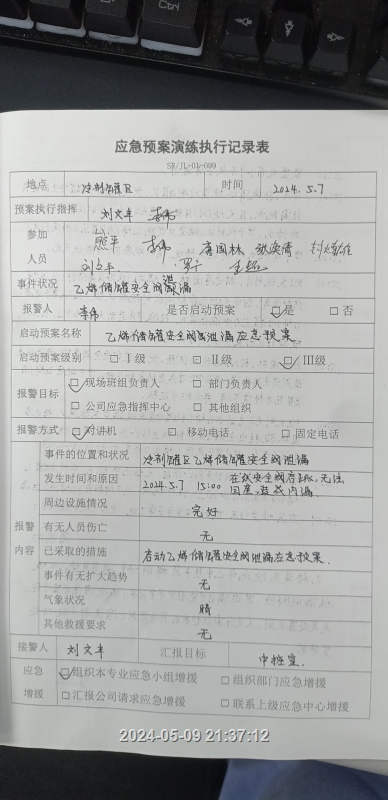 Ctrl
应急预案演练执行记录表
SR/JL-01-099
地点 冷剂罐区 时间 2024.5.7
预案执行指挥 刘文丰 李伟
参加 熊平 李伟 唐国林
人员 刘文丰 罗干
事件状况 乙烯储罐安全阀泄漏
报警人 李伟 是否启动预案 ☑是 □否
启动预案名称 乙烯储罐安全阀泄漏应急预案
启动预案级别 □Ⅰ级 □Ⅱ级 ☑Ⅲ级
☑现场班组负责人 □部门负责人
报警目标
□公司应急指挥中心 □其他组织
报警方式 ☑对讲机 □移动电话 □固定电话
事件的位置和状况 冷剂罐区乙烯储罐安全阀泄漏
发生时间和原因 2024.5.7 15:00 在线安全阀存在,无法回座,造成内漏
周边设施情况 完好
报警 有无人员伤亡 无
内容 已采取的措施 启动乙烯储罐安全阀泄漏应急预案.
事件有无扩大趋势 无
气象状况 晴
其他救援要求 无
接警人 刘文丰 汇报目标 中控室.
应急 ☑组织本专业应急小组增援 □组织部门应急增援
增援 □汇报公司请求应急增援 □联系上级应急中心增援
2024-05-09 21:37:12